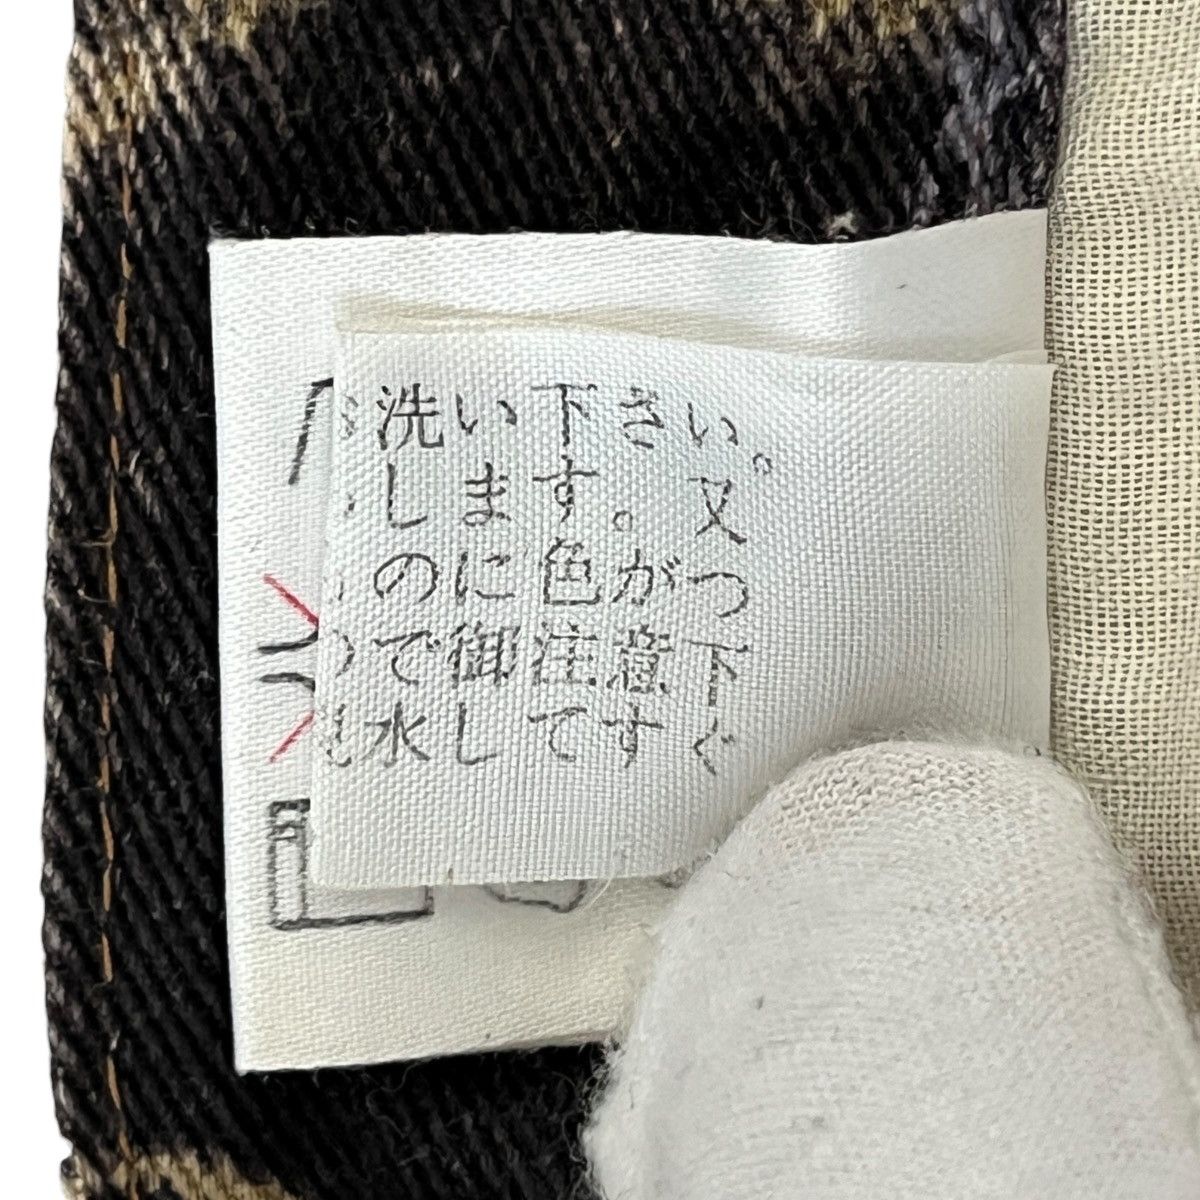 洗い下さい。
します。又
のに色がつ
で御注意下
水しですぐ